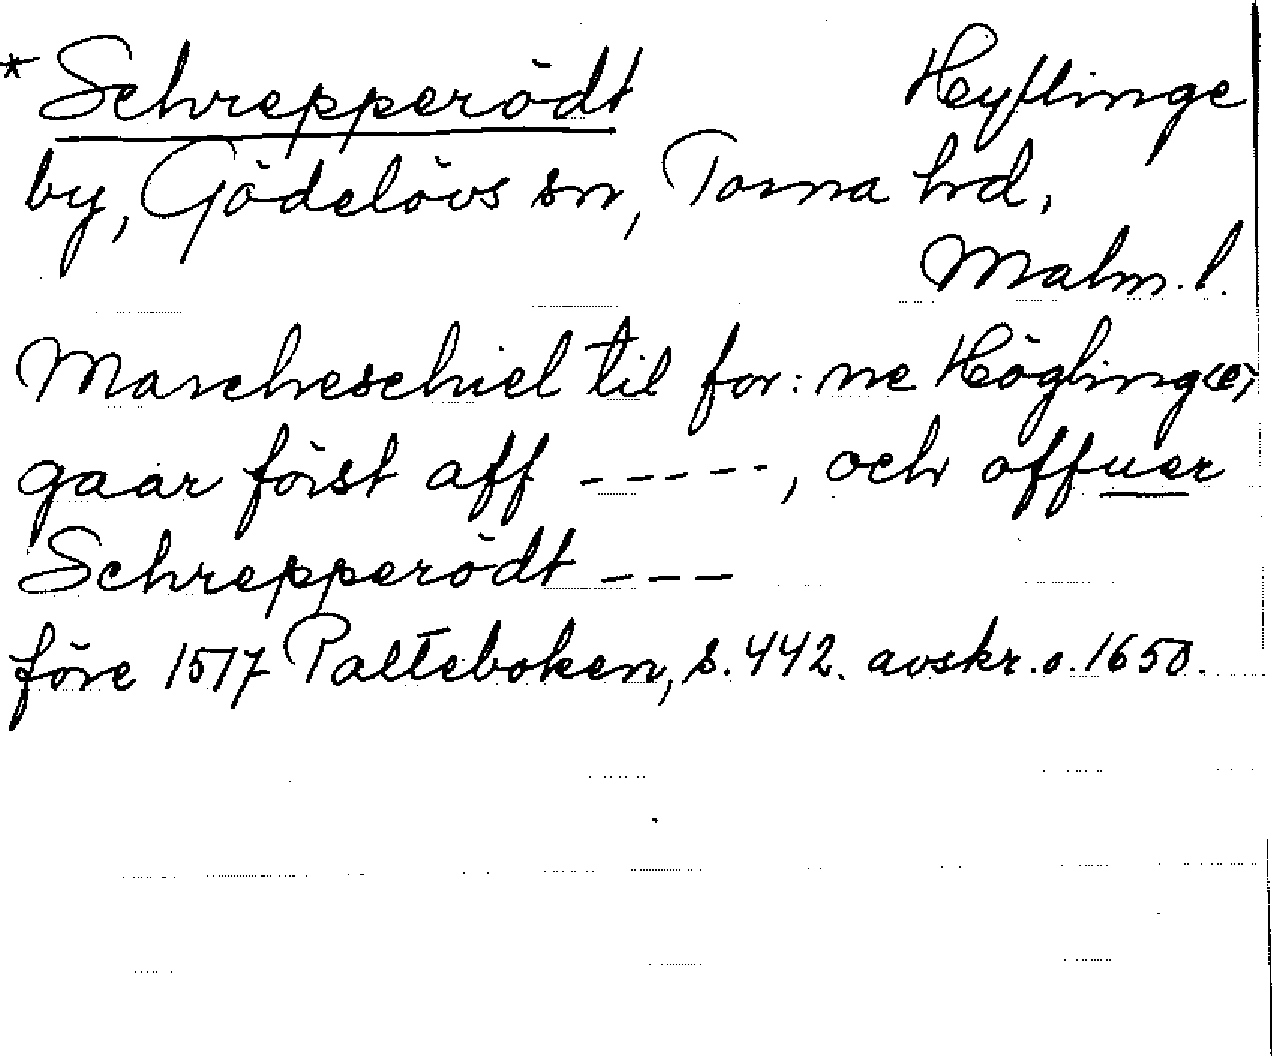 * Schrepperödt Heyflinge
by, Gödelövs sn, Torna hd,
Malm. l.
Marcheschiel til for: ne Högling(e)
gaar först aff -----, och offuer
Schrepperödt ---
före 1517 Palteboken, s. 442. avskr. o. 1650.